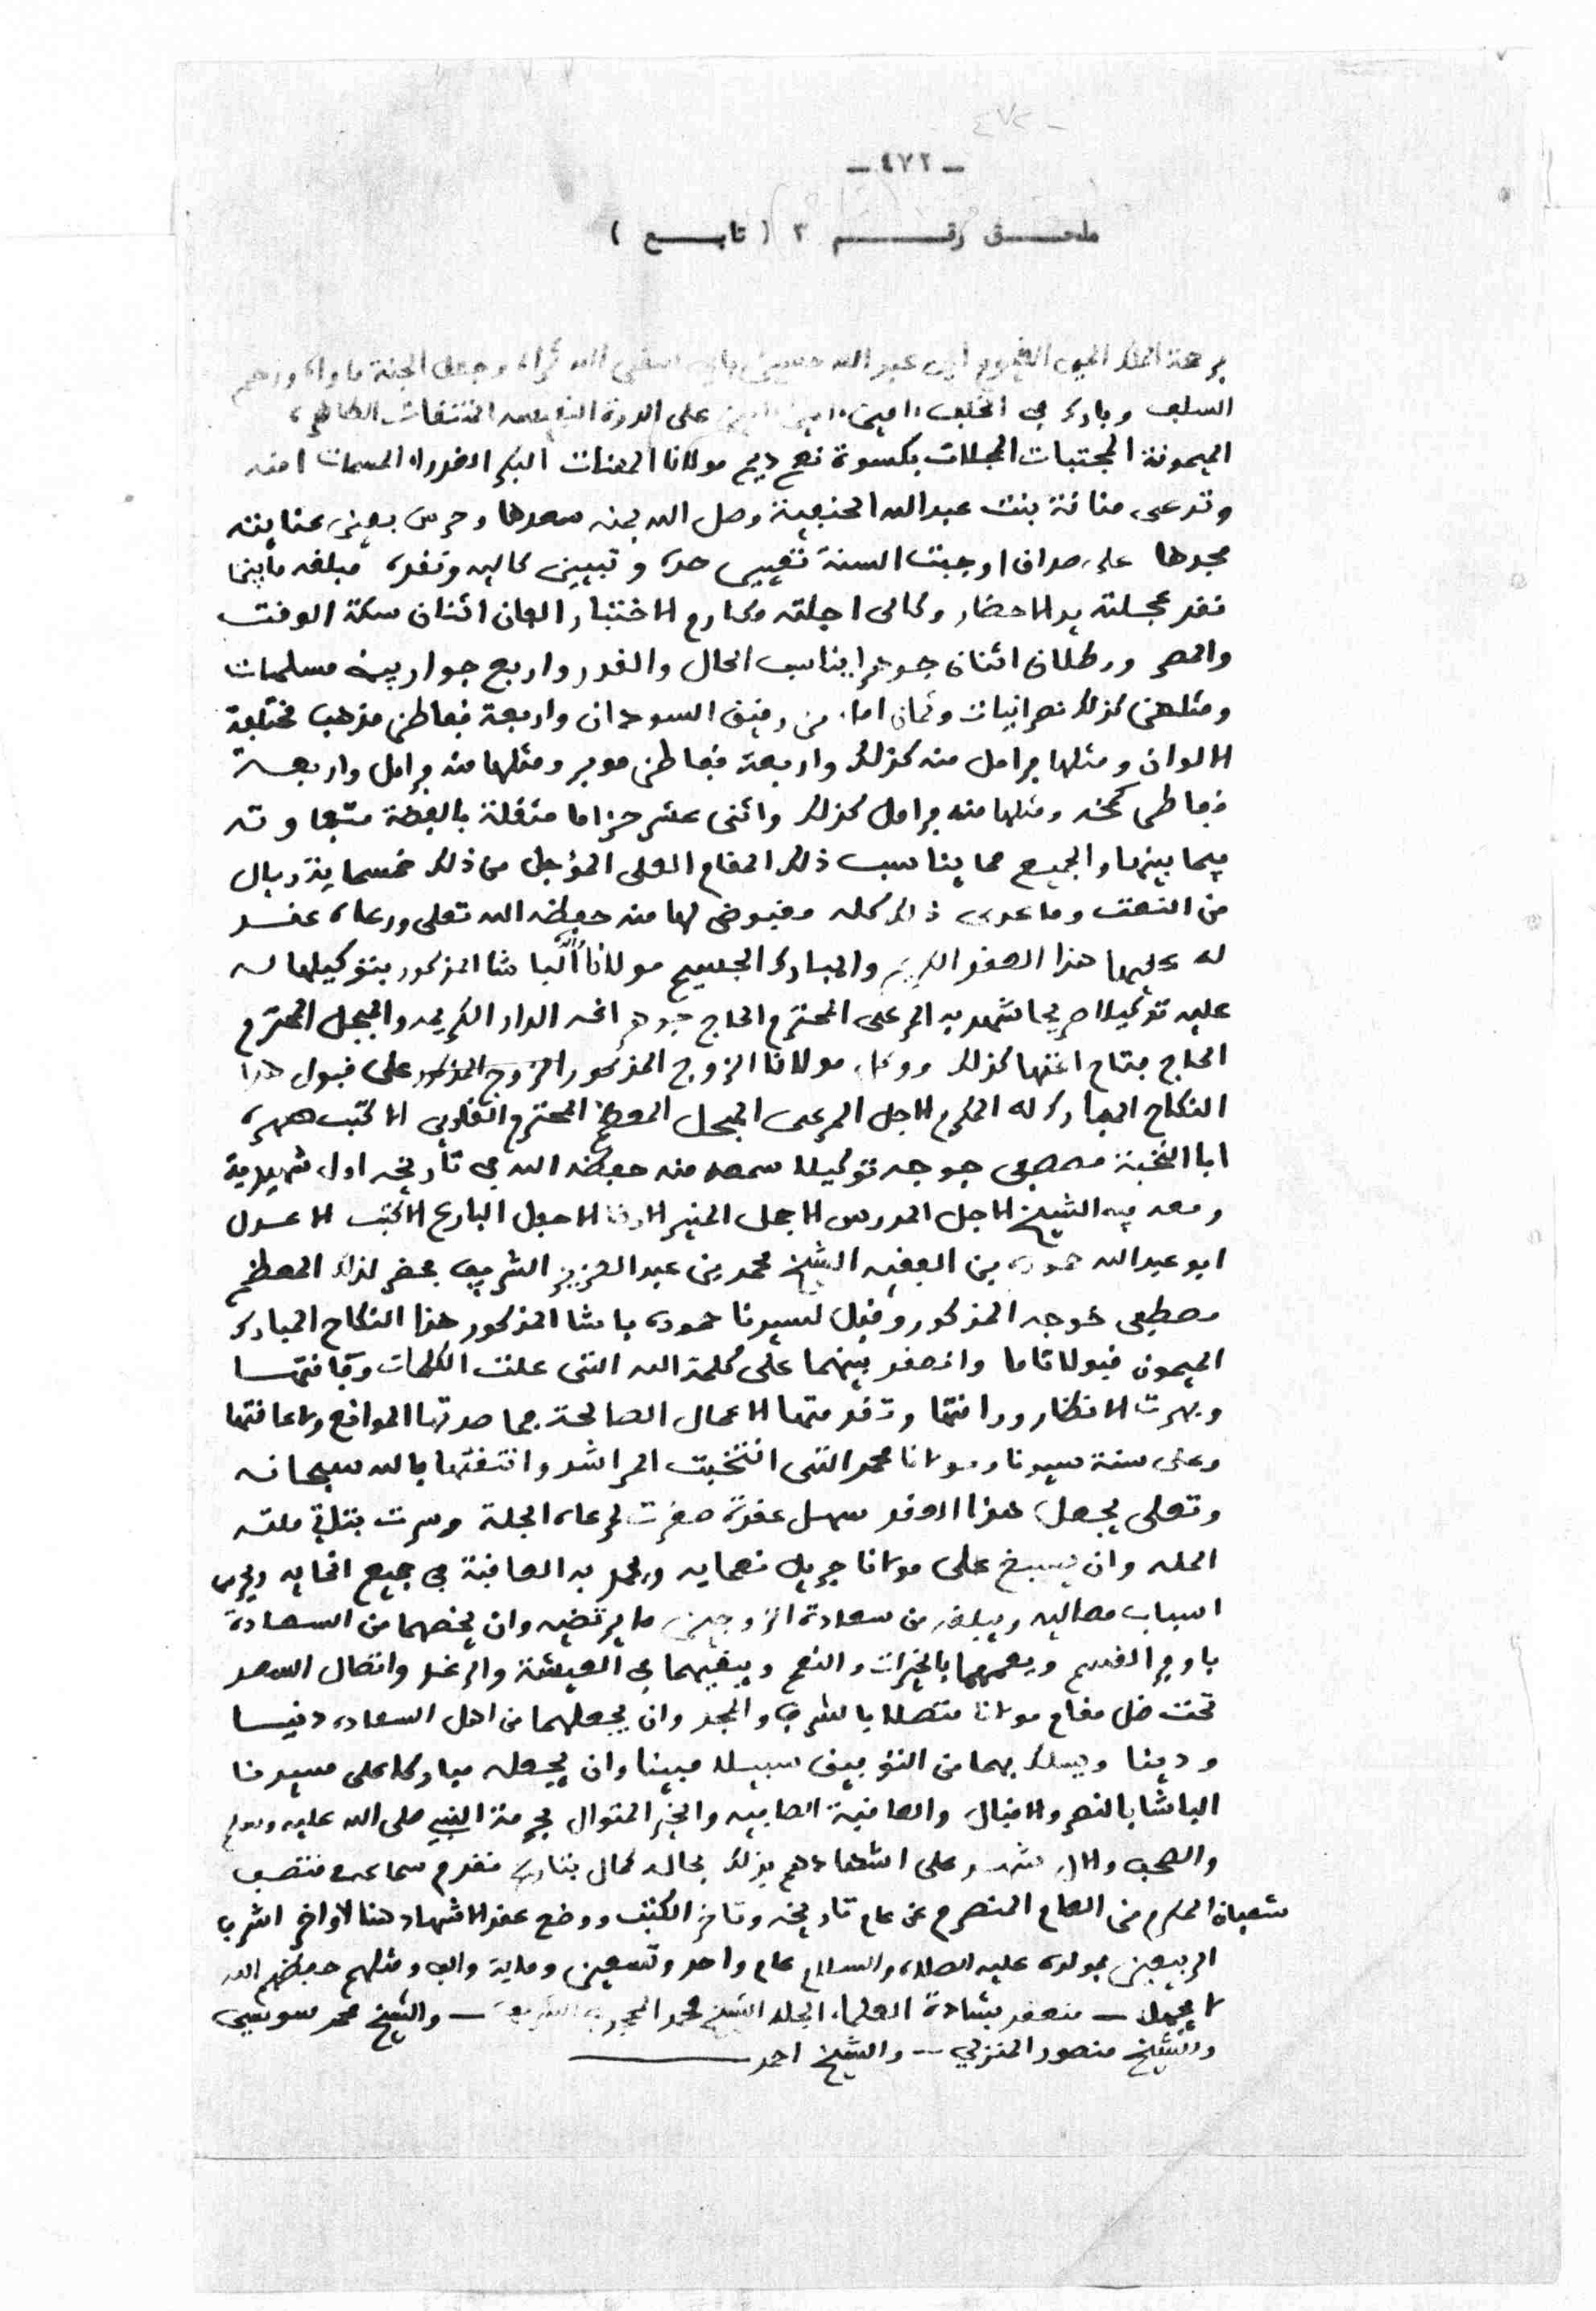 - ٤٧٢
ـ ٤٧٢ ـ
ملحـــق رقـــم ٣ ( تابـــع )
الله ثراه وجعل الجنة ماواه ورحم
السلف وبارك في الخلف امين امين امين على الدرة
الميمونة المجتبات المجللات بكسوة نعم مولانا المعنات البكر المسمات امنه
وتدعى منانة بنت عبدالله الحنفية وصل الله بمنه سعدها وحرس بعين عنايته
مجدها على صداق اوجبت السنة تعيين حده و تبيين كاليه ونقده مبلغه مابينما
نقد عجلته يد الاحضار وكالى اجلته مكارم الاختيار الفان اثنان سكة الوقت
والصر ورطلان اثنان جوهرا يناسب الحال والقدر واربع جوار بيض مسلمات
ومثلهن كذلك نصرانيات وثمان اماء من رقيق السودان واربعة قفاطن مذهب مختلفة
الالوان ومثلها فرامل منه كذلك واربعة قفاطن موبر ومثلها منه فرامل واربعـة
قفاطن كمخه ومثلها منه فرامل كذلك واثنى عشر حزاما مثقلة بالفضة متفاوته
فيما بينها والجميع مما يناسب ذلك المقام العلى المؤجل من ذلك خمسماية ريال
من النعت وما عدى ذلك كله مقبوض لها منه حفظه الله تعلى ورعاه عقـد
له عليها هذا العقد الكريم والمبارك الجسيم مولانا الباشا المذكور بتوكيلها له
عليه توكيلا صريحا شهد به المرعى المحترم الحاج جوهر اغه الدار الكريمه والمبجل المحترم
الحاج مفتاح اغتها كذلك ووكل مولانا الزوج المذكور الزوج المذكور على قبول هذا
النكاح المبارك له المكرم الاجل المرعى المبجل المعظم المحترم الاكتب صهره
ابا النخبة مصطفى خوجه توكيلا سمعه منه حفظه الله في تاريخه اول
ومعه فيه الشيخ الاجل المدرس الاجمل الخير الاحفل البارع الاكتب الاعـدل
ابو عبدالله حموده بن الفقيه الشيخ محمد بن عبدالعزيز الشريف بحضر لذلك المعظم
مصطفى خوجه المذكور وقبل لسيدنا حموده باشا المذكور هذا النكاح المبارك
الميمون قبولا تاما وانعقد بينهما على كلمة الله التى علت الكلمات وفاقتهـا
وبهرت الانظار وراقتها وتقدمتها الاعمال الصالحة فما صدتها الموانع ولاعاقتها
وعلى سنة سيدنا ومولانا محمد التى انتخبت المراشد وانتقتها بالله سبحانه
وتعلى يجعل هذا العقد سهل عقدة صغرت لرعاه الجلة وسرت بتلاق ملته
المله وان يسبغ على مولانا جزيل نعمايه ويمد به العافية في جميع انحايه ويحرس
اسباب معاليه ويبلغه من سعادة الزوجين ما يرتضيه وان يخصهما من السعادة
باوفر القسم ويعمهما بالخيرات والنعم ويبقيهما في العيشة والرغد واتصال السعد
تحت ظل مقام مولانا متصلا بالشرف والمجد وان يجعلهما من اهل السعاده دنيـا
ودينا ويسلك بهما من التوفيق سبيلا مبينا وان يجعله مباركا على سيدنا
الباشا بالنصر والاقبال والعافية الصافيه والخير المتوال بحرمة النبي صلى الله عليه وسلم
والصحب والال شهـد على اشهادهم بذلك بحال كمال بتاريخ متقدم سماعه منتصف
شعبان المكرم من العام المنصرم عن عام تاريخه وتاخر الكتب ووضع عقد الاشهاد هنا لاواخر اشرف
الربيعين بمولده عليه الصلاه والسلام عام واحد وتسعين وماية والف ومثلهم حفظهم الله
لا يجهل ـ منعقد بشهادة العلماء الجله الشيخ محمد المحجوب الشريف ـ والشيخ محمد سويسي
والشيخ منصور المنزلي ـ والشيخ احمد ـ